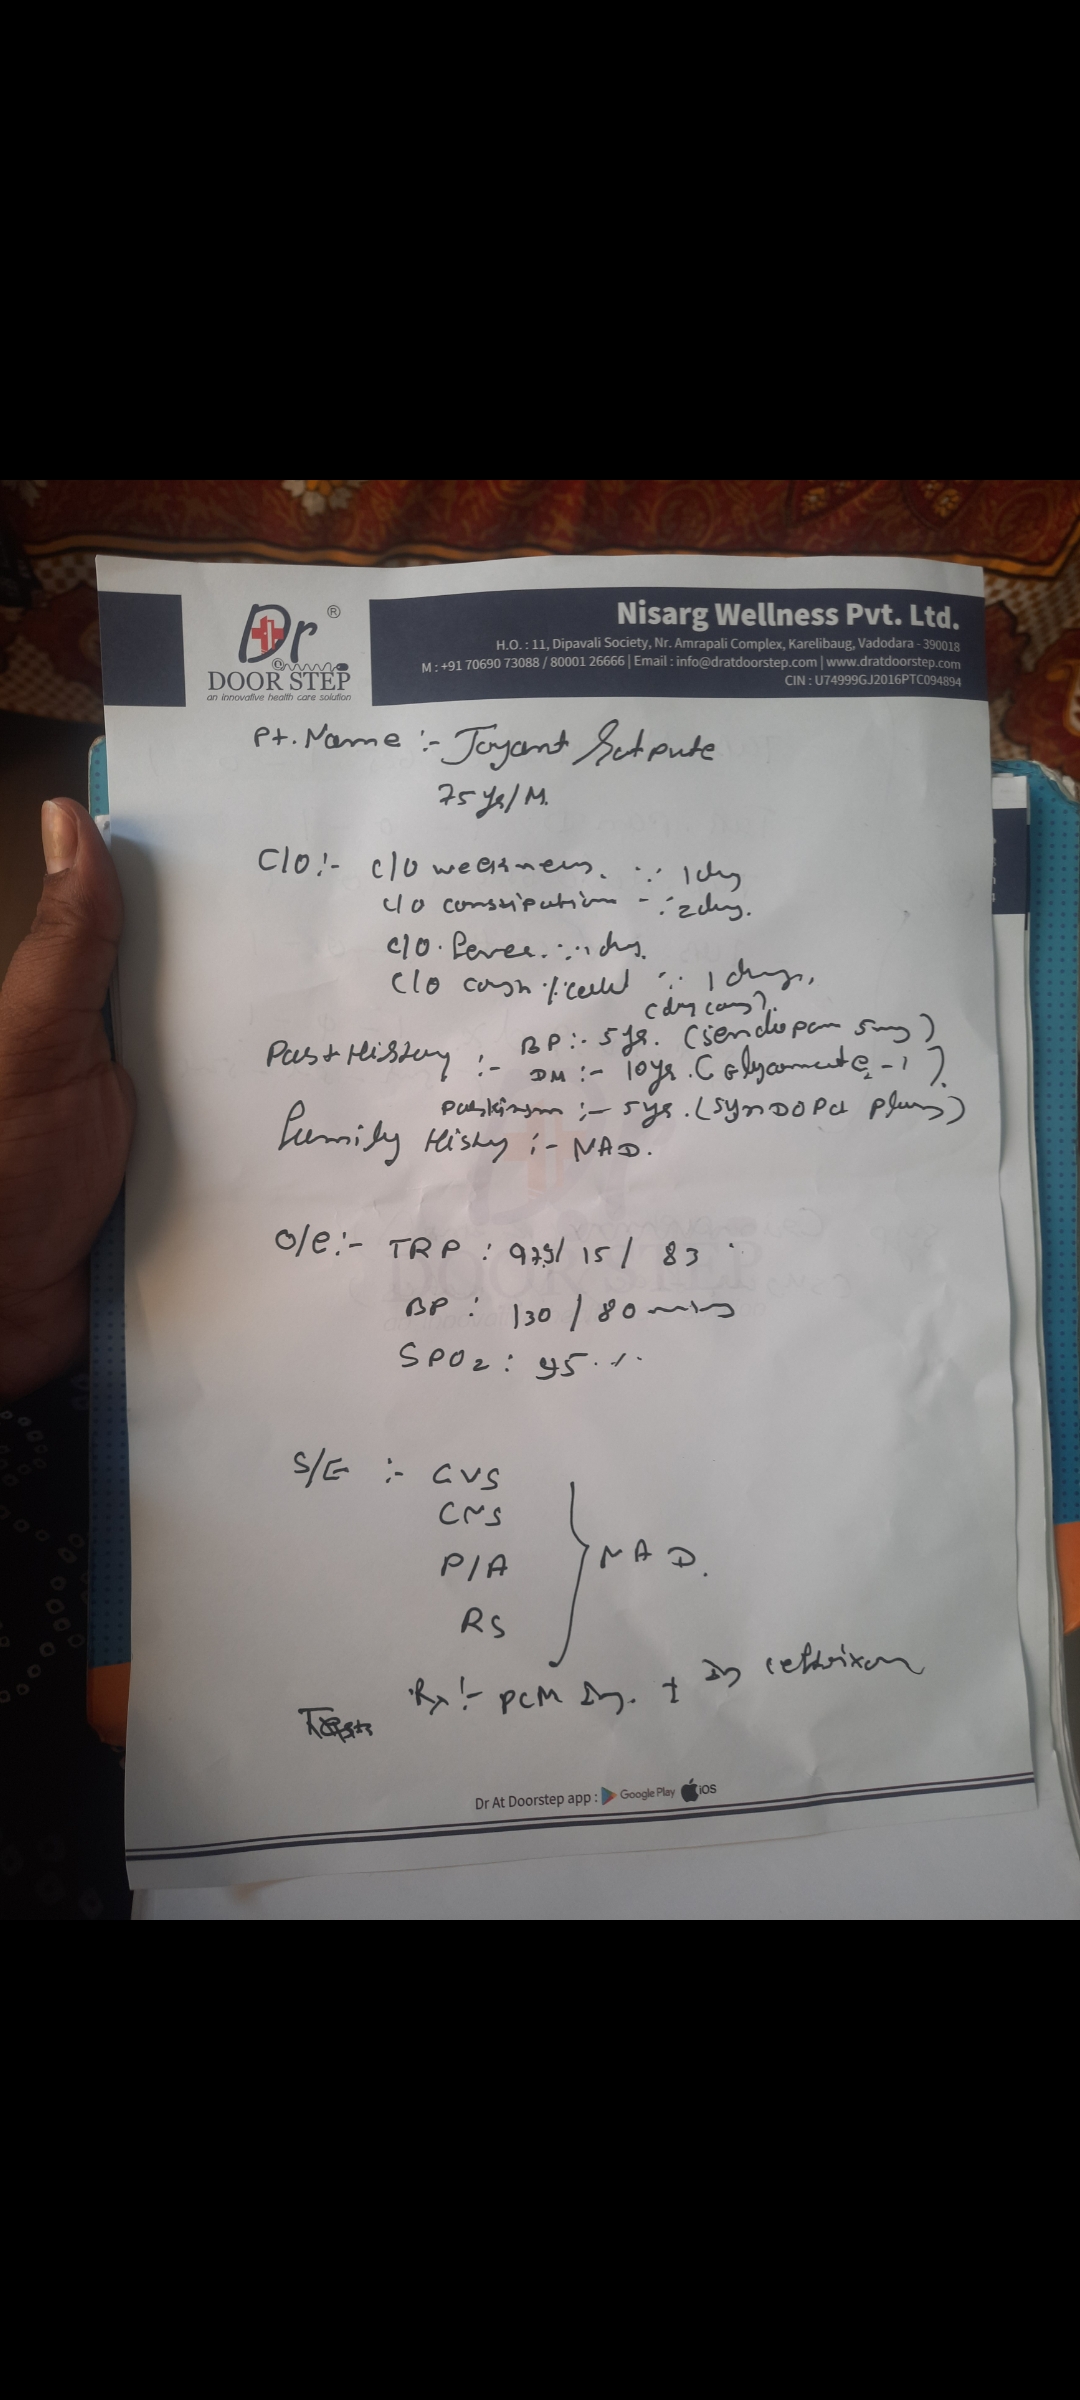 Dr ®
@
DOOR STEP
an innovative health care solution
Nisarg Wellness Pvt. Ltd.
H.O. : 11, Dipavali Society, Nr. Amrapali Complex, Karelibaug, Vadodara - 390018
M : +91 70690 73088 / 80001 26666 | Email : info@dratdoorstep.com | www.dratdoorstep.com
CIN : U74999GJ2016PTC094894
Pt. Name :- Jayant Satpute
75 yrs/M.
C/O :- C/O weakness. ∵ 1 day
C/O constipation - ∵ 2 day.
C/O. fever ∵ 1 day.
C/O cough / cold ∵ 1 days.
(dry cough).
Past History :- BP :- 5 yrs. ( 5 mg)
DM :- 10 yrs. ( - 1 ).
Parkinson :- 5 yrs. (SYNDOPA plus)
Family History :- NAD.
O/E :- TRP : / 15 / 83
BP : 130 / 80 mmHg
SPO2 : 95 %.
S/E :- CVS
CNS
P/A
RS
NAD.
Rx :- PCM Inj. + Inj
Dr At Doorstep app : Google Play iOS